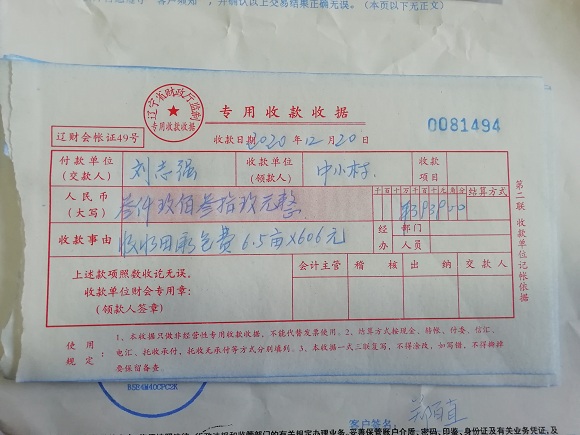 并确认以上交易结果正确无误。(本页以下无正文)
辽宁省财政厅监制
专用收款收据
专用收款收据
0081494
辽财会帐证49号
收款日期 2020年12月20日
付款单位(交款人) 刘志强 收款单位(领款人) 中小村 收款项目
人民币(大写) 叁仟玖佰叁拾玖元整 千百十万千百十元角分 结算方式
¥3939.00
收款事由 费6.5亩×606元 经办 部门 人员
上述款项照数收讫无误。 会计主管 稽核 出纳 交款人
收款单位财会专用章:
(领款人签章)
使用规定: 1、本收据只做非经营性专用收款收据,不能代替发票使用。2、结算方式按现金、转帐、付委、信汇、
电汇、托收承付、托收无承付等方式分别填列。3、本收据一式三联复写,不得涂改,如写错,不得撕掉
要保留备查。
第二联 收款单位记帐依据
客户签名
妥善保管账户介质、密码、印鉴、身份证及有关业务凭证,及